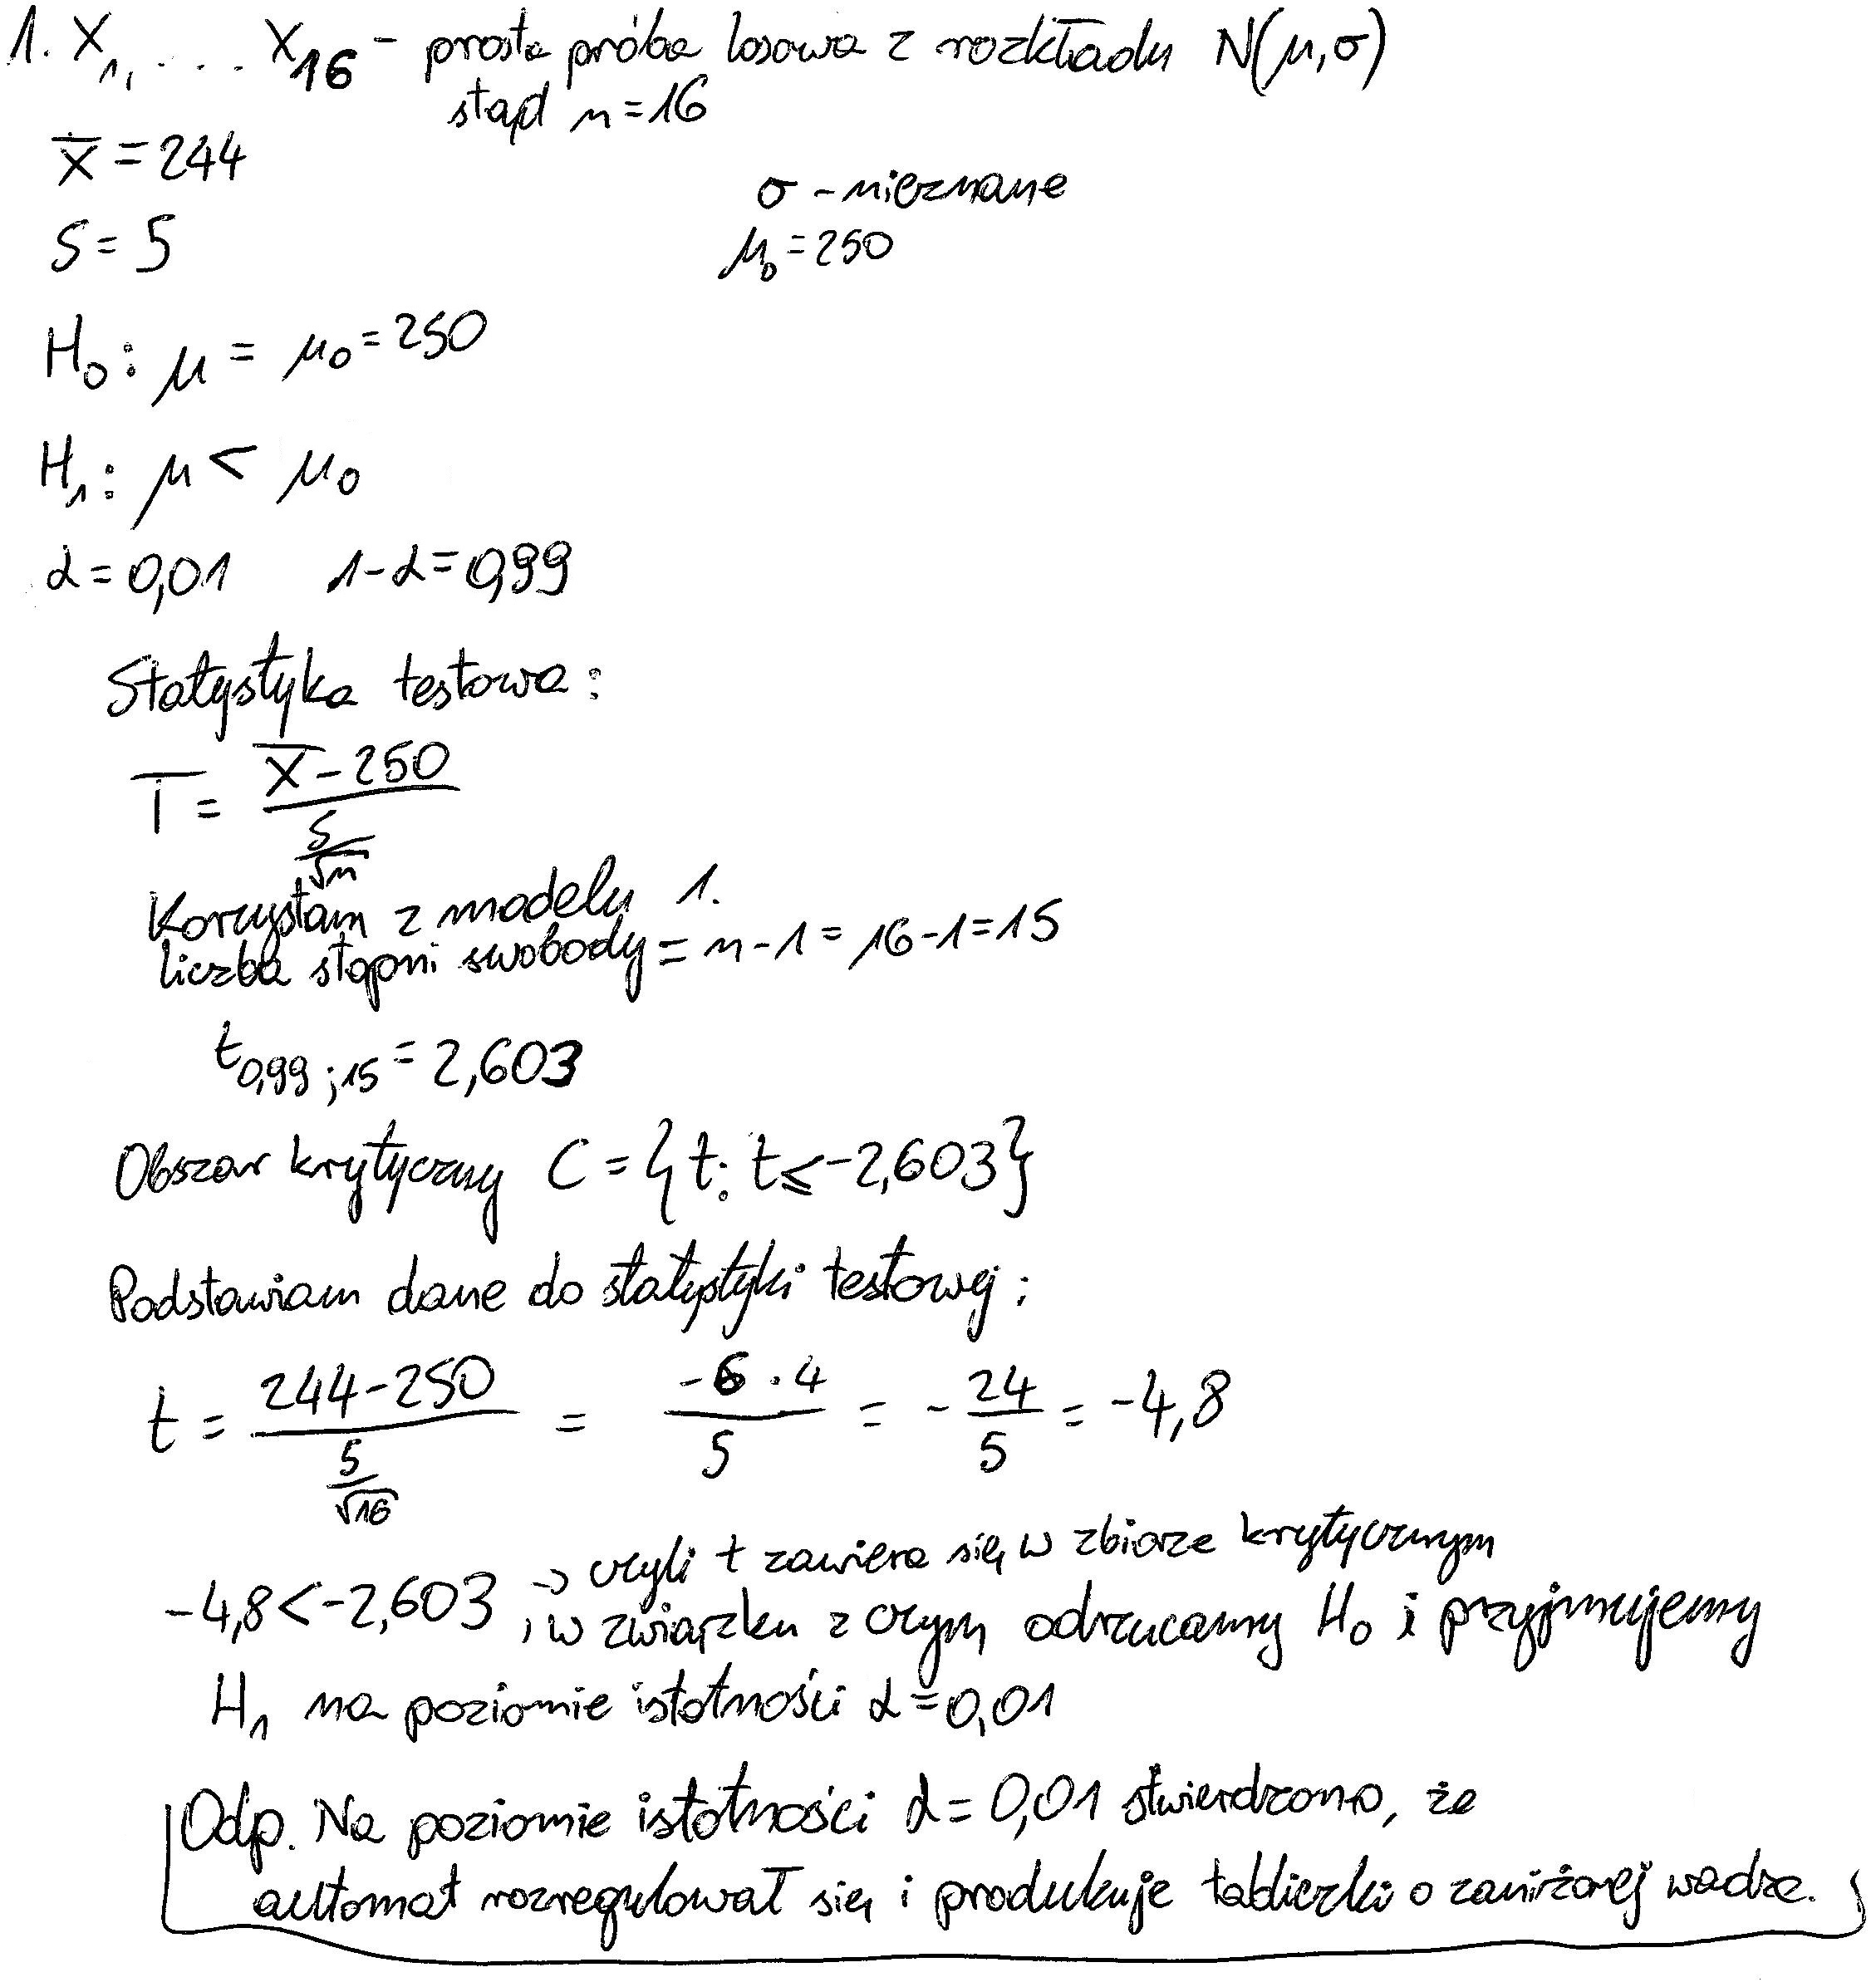 1. X₁, .... X₁₆ - prosta próba losowa z rozkładu N(μ,σ)
stąd n=16
X̅ = 244
σ - nieznane
S = 5
μ₀ = 250
H₀: μ = μ₀ = 250
H₁: μ < μ₀
α = 0,01 1-α = 0,99
Statystyka testowa:
T = (X̅ - 250) / (S/√n)
Korzystam z modelu 1.
liczba stopni swobody = n-1 = 16-1 = 15
t₀,₉₉ ; ₁₅ = 2,603
Obszar krytyczny C = {t: t ⩽ -2,603}
Podstawiam dane do statystyki testowej:
t = (244-250) / (5/√16) = (-6 · 4) / 5 = - 24/5 = -4,8
-4,8 < -2,603 → czyli t zawiera się w zbiorze krytycznym
, w związku z czym odrzucamy H₀ i przyjmujemy
H₁ na poziomie istotności α = 0,01
Odp. Na poziomie istotności α = 0,01 stwierdzono, że
automat rozregulował się i produkuje tabliczki o zaniżonej wadze.